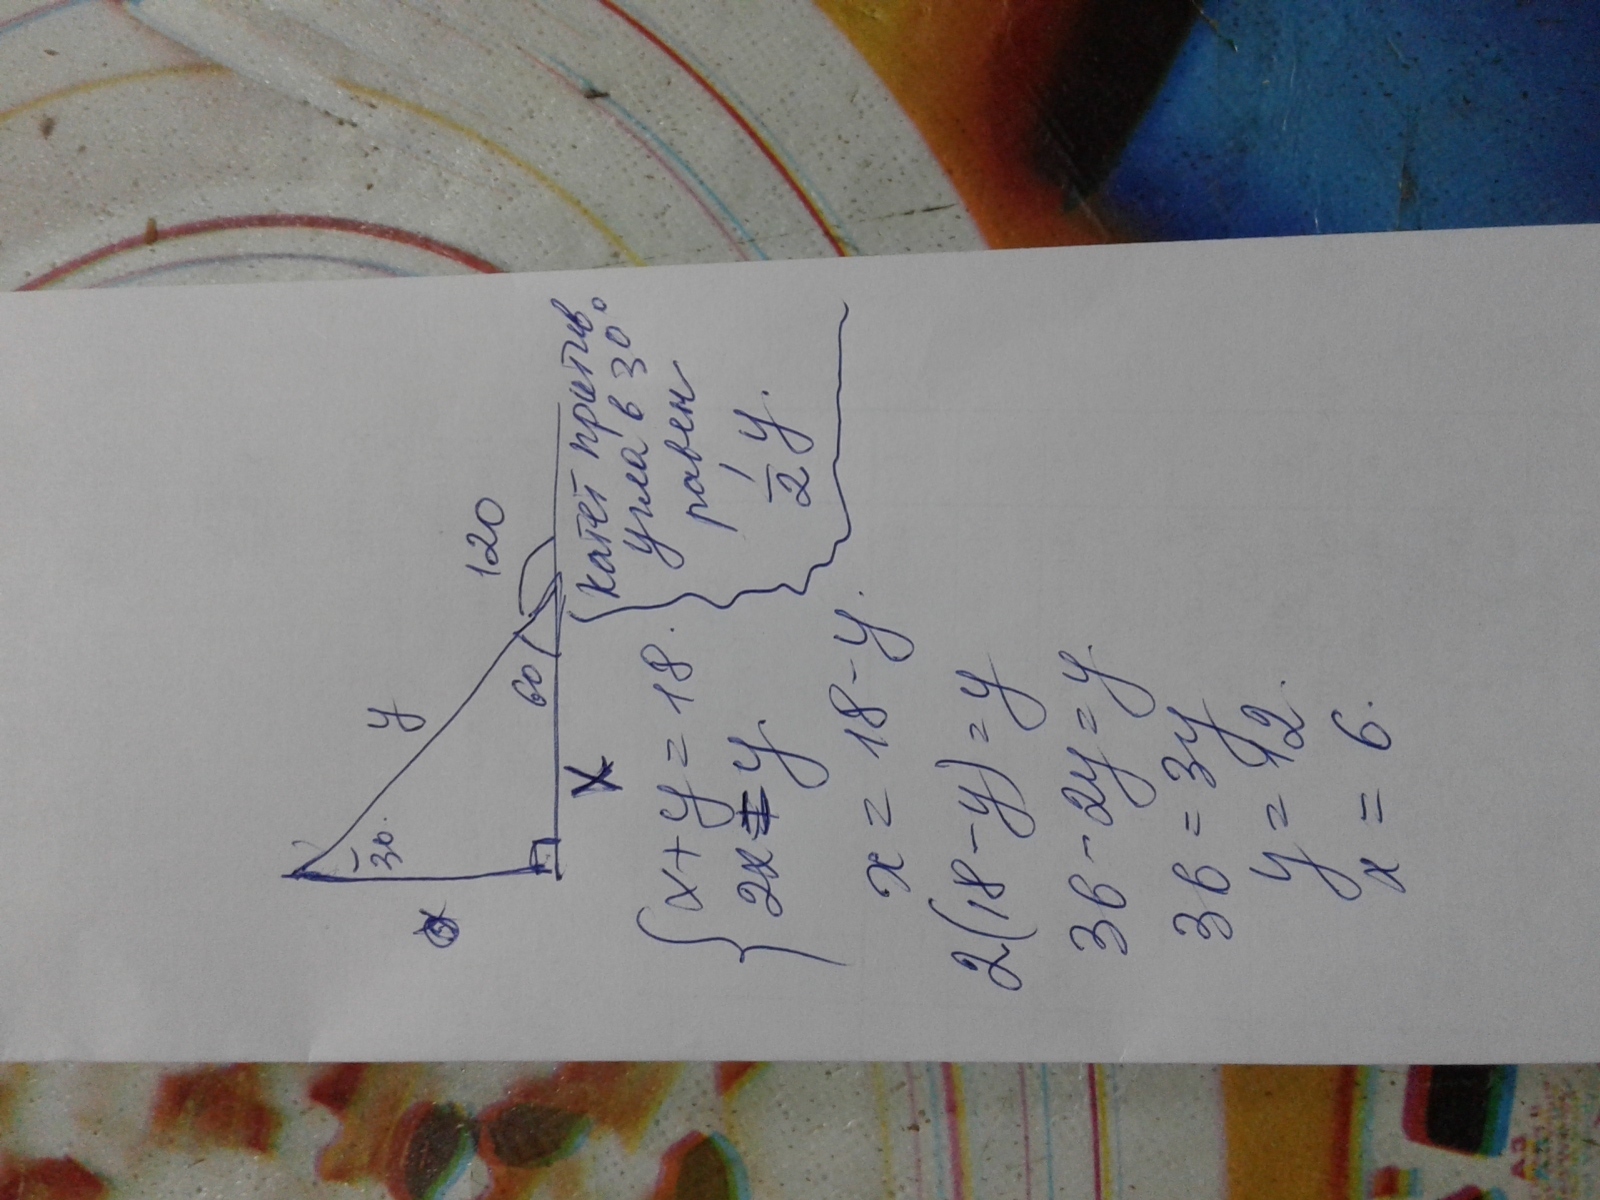 y
120
30.
60
x
(катет против.
угла в 30°
равен
1/2 y.
{ x + y = 18.
2x = y
x = 18 - y.
2(18 - y) = y
36 - 2y = y.
36 = 3y
y = 12.
x = 6.